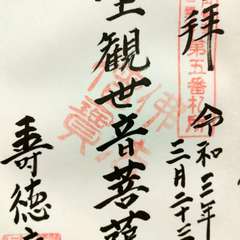 拝
第五番札所
令和三年
三月二十三
聖観世音菩薩
佛法僧寶
寿徳